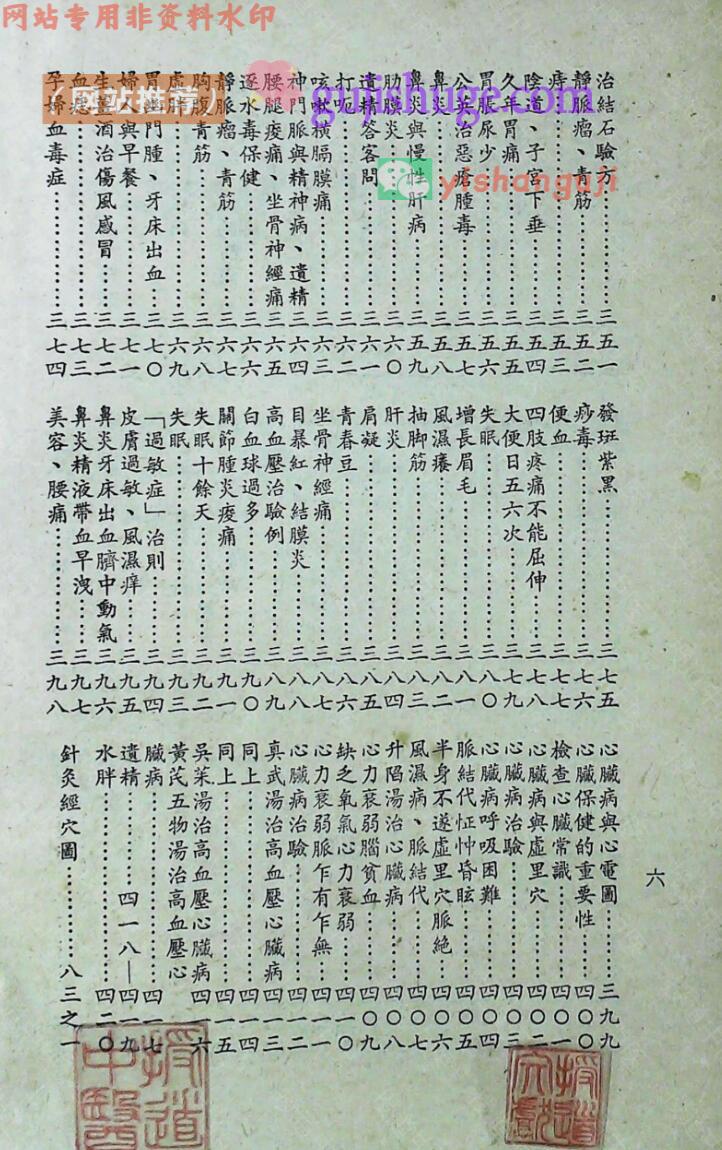 网站专用非资料水印
(网站推荐)
gujishuge.com
yishanguji
治結石驗方……三五一
靜脈瘤、青筋……三五二
痔……三五三
陰道、子宮下垂……三五四
久年胃痛……三五五
胃脹尿少……三五六
公英治惡瘡腫毒……三五七
鼻炎……三五八
鼻炎與慢性肝病……三五九
肋膜炎……三六〇
遺精答客問……三六一
打呃……三六二
咳嗽橫膈膜痛……三六三
神門脈與精神病、遺精……三六四
腰腿痠痛、坐骨神經痛……三六五
逐水毒保健……三六六
靜脈瘤、青筋……三六七
胸腹青筋……三六八
虛胖……三六九
胃幽門腫、牙床出血……三七〇
婦 與早餐……三七一
生薑酒治傷風感冒……三七二
血癌……三七三
孕婦血毒症……三七四
發斑紫黑……三七五
痧毒……三七六
便血……三七七
四肢疼痛不能屈伸……三七八
大便日五六次……三七九
失眠……三八〇
增長眉毛……三八一
風濕癢……三八二
抽脚筋……三八三
肝炎……三八四
肩凝……三八五
青春豆……三八六
坐骨神經痛……三八七
目暴紅、結膜炎……三八八
高血壓治驗例……三八九
白血球過多……三九〇
關節腫炎痠痛……三九一
失眠十餘天……三九二
失眠……三九三
「過敏症」治則……三九四
皮膚過敏、風濕痒……三九五
鼻炎牙床出血臍中動氣……三九六
鼻炎精液帶血早洩……三九七
美容、腰痛……三九八
心臟病與心電圖……三九九
心臟保健的重要性……四〇〇
檢查心臟常識……四〇一
心臟病與虛里穴……四〇二
心臟病治驗……四〇三
心臟病呼吸困難……四〇四
脈結代怔忡昏眩……四〇五
半身不遂虛里穴脈絕……四〇六
風濕病、脈結代……四〇七
升陷湯治心臟病……四〇八
心力衰弱腦貧血……四〇九
缺乏氧氣心力衰弱……四一〇
心力衰弱脈乍有乍無……四一一
心臟病治驗……四一二
真武湯治高血壓心臟病……四一三
同上……四一四
同上……四一五
吳茱湯治高血壓心臟病……四一六
黃芪五物湯治高血壓心
臟病……四一七
遺精……四一八—四一九
水胖……四二〇
針灸經穴圖……八三之一
六
授道中醫